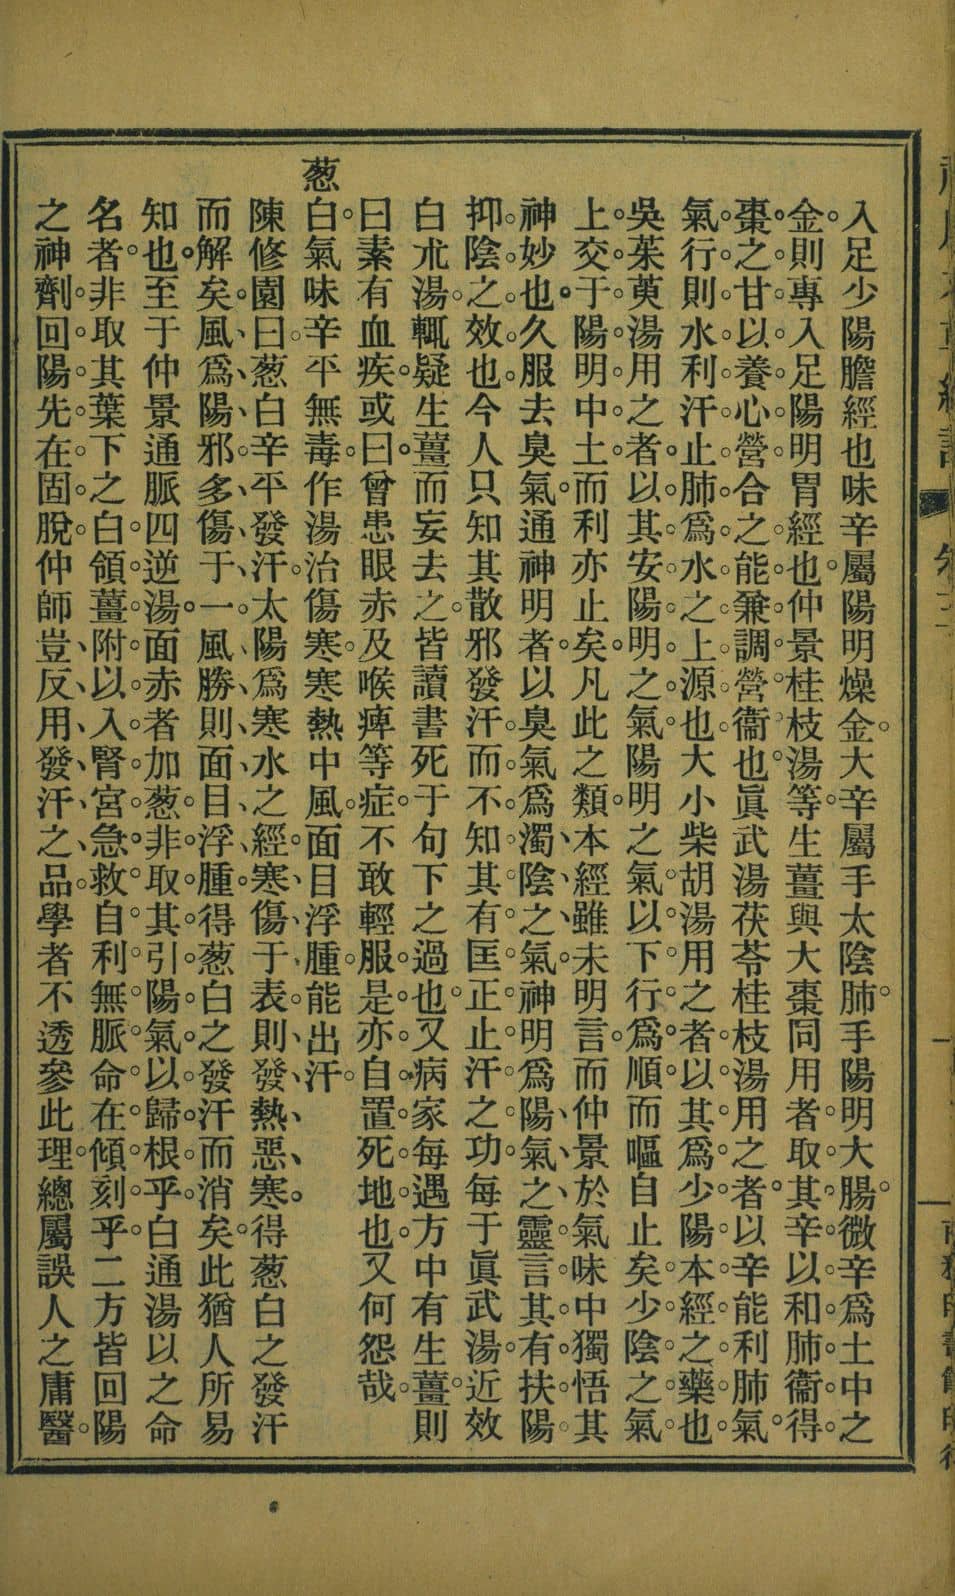 入足少陽膽經也味辛屬陽明燥金。大辛屬手太陰肺。手陽明大腸。微辛爲土中之
金。則專入足陽明胃經也。仲景桂枝湯等生薑與大棗同用者。取其辛以和肺衞。得
棗之甘以養心營。合之能兼調營衞也。眞武湯茯苓桂枝湯用之者。以辛能利肺氣。
氣行則水利汗止。肺爲水之上源也。大小柴胡湯用之者。以其爲少陽本經之藥也。
吳茱萸湯用之者。以其安陽明之氣。陽明之氣以下行爲順。而嘔自止矣。少陰之氣
上交于陽明中土。而利亦止矣。凡此之類。本經雖未明言。而仲景於氣味中獨悟其
神妙也。久服去臭氣通神明者。以臭氣爲濁陰之氣。神明爲陽氣之靈。言其有扶陽
抑陰之效也。今人只知其散邪發汗。而不知其有匡正止汗之功。每于眞武湯近效
白朮湯。輒疑生薑而妄去之。皆讀書死于句下之過也。又病家每遇方中有生薑。則
曰素有血疾。或曰曾患眼赤及喉痺等症。不敢輕服。是亦自置死地也。又何怨哉。
葱白。氣味辛平無毒。作湯治傷寒。寒熱中風。面目浮腫。能出汗。
陳修園曰。葱白辛平發汗。太陽爲寒水之經。寒傷于表。則發熱惡寒。得葱白之發汗
而解矣。風爲陽邪、多傷于、一風勝則面目浮腫。得葱白之發汗而消矣。此猶人所易
知也。至于仲景通脈四逆湯。面赤者加葱。非取其引陽氣以歸根乎。白通湯以之命
名者。非取其葉下之白。領薑附以入腎宮。急救自利無脈。命在傾刻乎。二方皆回陽
之神劑。回陽先在固脫。仲師豈反用發汗之品。學者不透參此理。總屬誤人之庸醫。